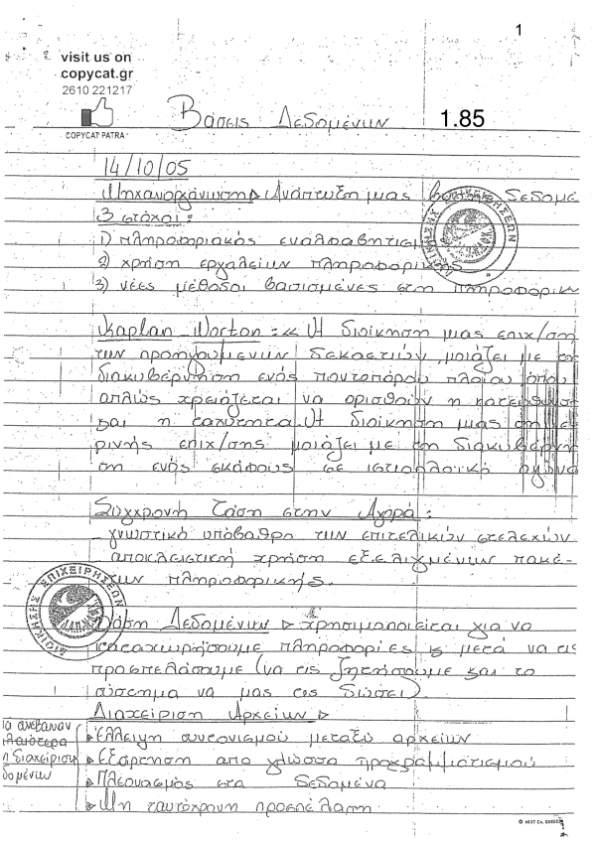 1
visit us on
copycat.gr
2610 221217
COPYCAT PATRA
Βάσεις Δεδομένων
1.85
14/10/05
Μηχανοργάνωση Ανάπτυξη μιας βάσης δεδομέ
3 στόχοι:
1) πληροφοριακός εναλφαβητισμός
2) χρήση εργαλείων πληροφορικής
3) νέες μέθοδοι βασισμένες στη πληροφορικ
Kaplan Norton: << Η διοίκηση μιας επιχ/ση
των προηγούμενων δεκαετιών μοιάζει με τη
διακυβέρνηση ενός ποντοπόρου πλοίου όπου
απλώς χρειάζεται να ορισθούν η κατεύθυνση
και η ταχύτητα. Η διοίκηση μιας
ρινής επιχ/σης μοιάζει με τη διακυβέρνη
ση ενός σκάφους σε ιστιοπλοϊκό αγώνα
Σύγχρονη Τάση στην Αγορά:
γνωστικό υπόβαθρο των επιτελικών στελεχών
αποκλειστική χρήση εξελιγμένων πακέ-
των πληροφορικής.
Βάση Δεδομένων Χρησιμοποιείται για να
καταχωρήσουμε πληροφορίες κ μετά να τις
προσπελάσουμε (να τις ζητήσουμε και το
σύστημα να μας τις δώσει).
Διαχείριση Αρχείων
Έλλειψη συντονισμού μεταξύ αρχείων
Εξάρτηση απο γλώσσα προγραμματισμού
Πλεονασμός στα δεδομένα
Μη ταυτόχρονη προσπέλαση
η διαχείριση
δομένων
ΔΙΟΙΚΗΣΗΣ ΕΠΙΧΕΙΡΗΣΕΩΝ
ΔΙΟΙΚΗΣΗΣ ΕΠΙΧΕΙΡΗΣΕΩΝ